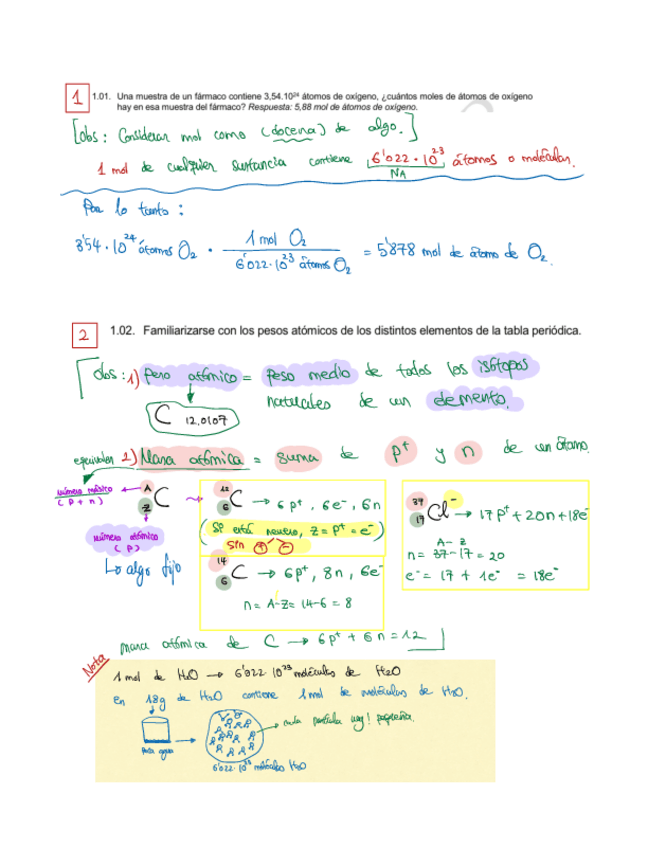 1
1.01. Una muestra de un fármaco contiene 3,54.10²⁴ átomos de oxígeno, ¿cuántos moles de átomos de oxígeno
hay en esa muestra del fármaco? Respuesta: 5,88 mol de átomos de oxígeno.
[obs: Considerar mol como (docena) de algo.]
1 mol de cualquier sustancia contiene 6'022·10²³ átomos o moléculas.
NA
Por lo tanto:
3'54·10²⁴ átomos O₂ · 1 mol O₂ / 6'022·10²³ átomos O₂ = 5'878 mol de átomo de O₂.
2
1.02. Familiarizarse con los pesos atómicos de los distintos elementos de la tabla periódica.
[obs: 1) Peso atómico = peso medio de todos los isótopos
naturales de un elemento.
C 12,0107
equivalen 2) Masa atómica = suma de p⁺ y n de un átomo.
número másico (p + n) ← A
Z C
número atómico (p)
↳ algo fijo
12 6 C → 6p⁺, 6e⁻, 6n
(Si está neutro, z = p⁺ = e⁻)
sin + -
14 6 C → 6p⁺, 8n, 6e⁻
n = A-Z = 14-6 = 8
37 17 Cl⁻ → 17p⁺ + 20n + 18e⁻
A- Z
n = 37-17 = 20
e⁻ = 17 + 1e⁻ = 18e⁻
masa atómica de C → 6p⁺ + 6n = 12]
Nota
1 mol de H₂O → 6'022·10²³ moléculas de H₂O
En 18g de H₂O contiene 1 mol de moléculas de H₂O.
cada partícula muy! pequeña.
agua
6'022·10²³ moléculas H₂O